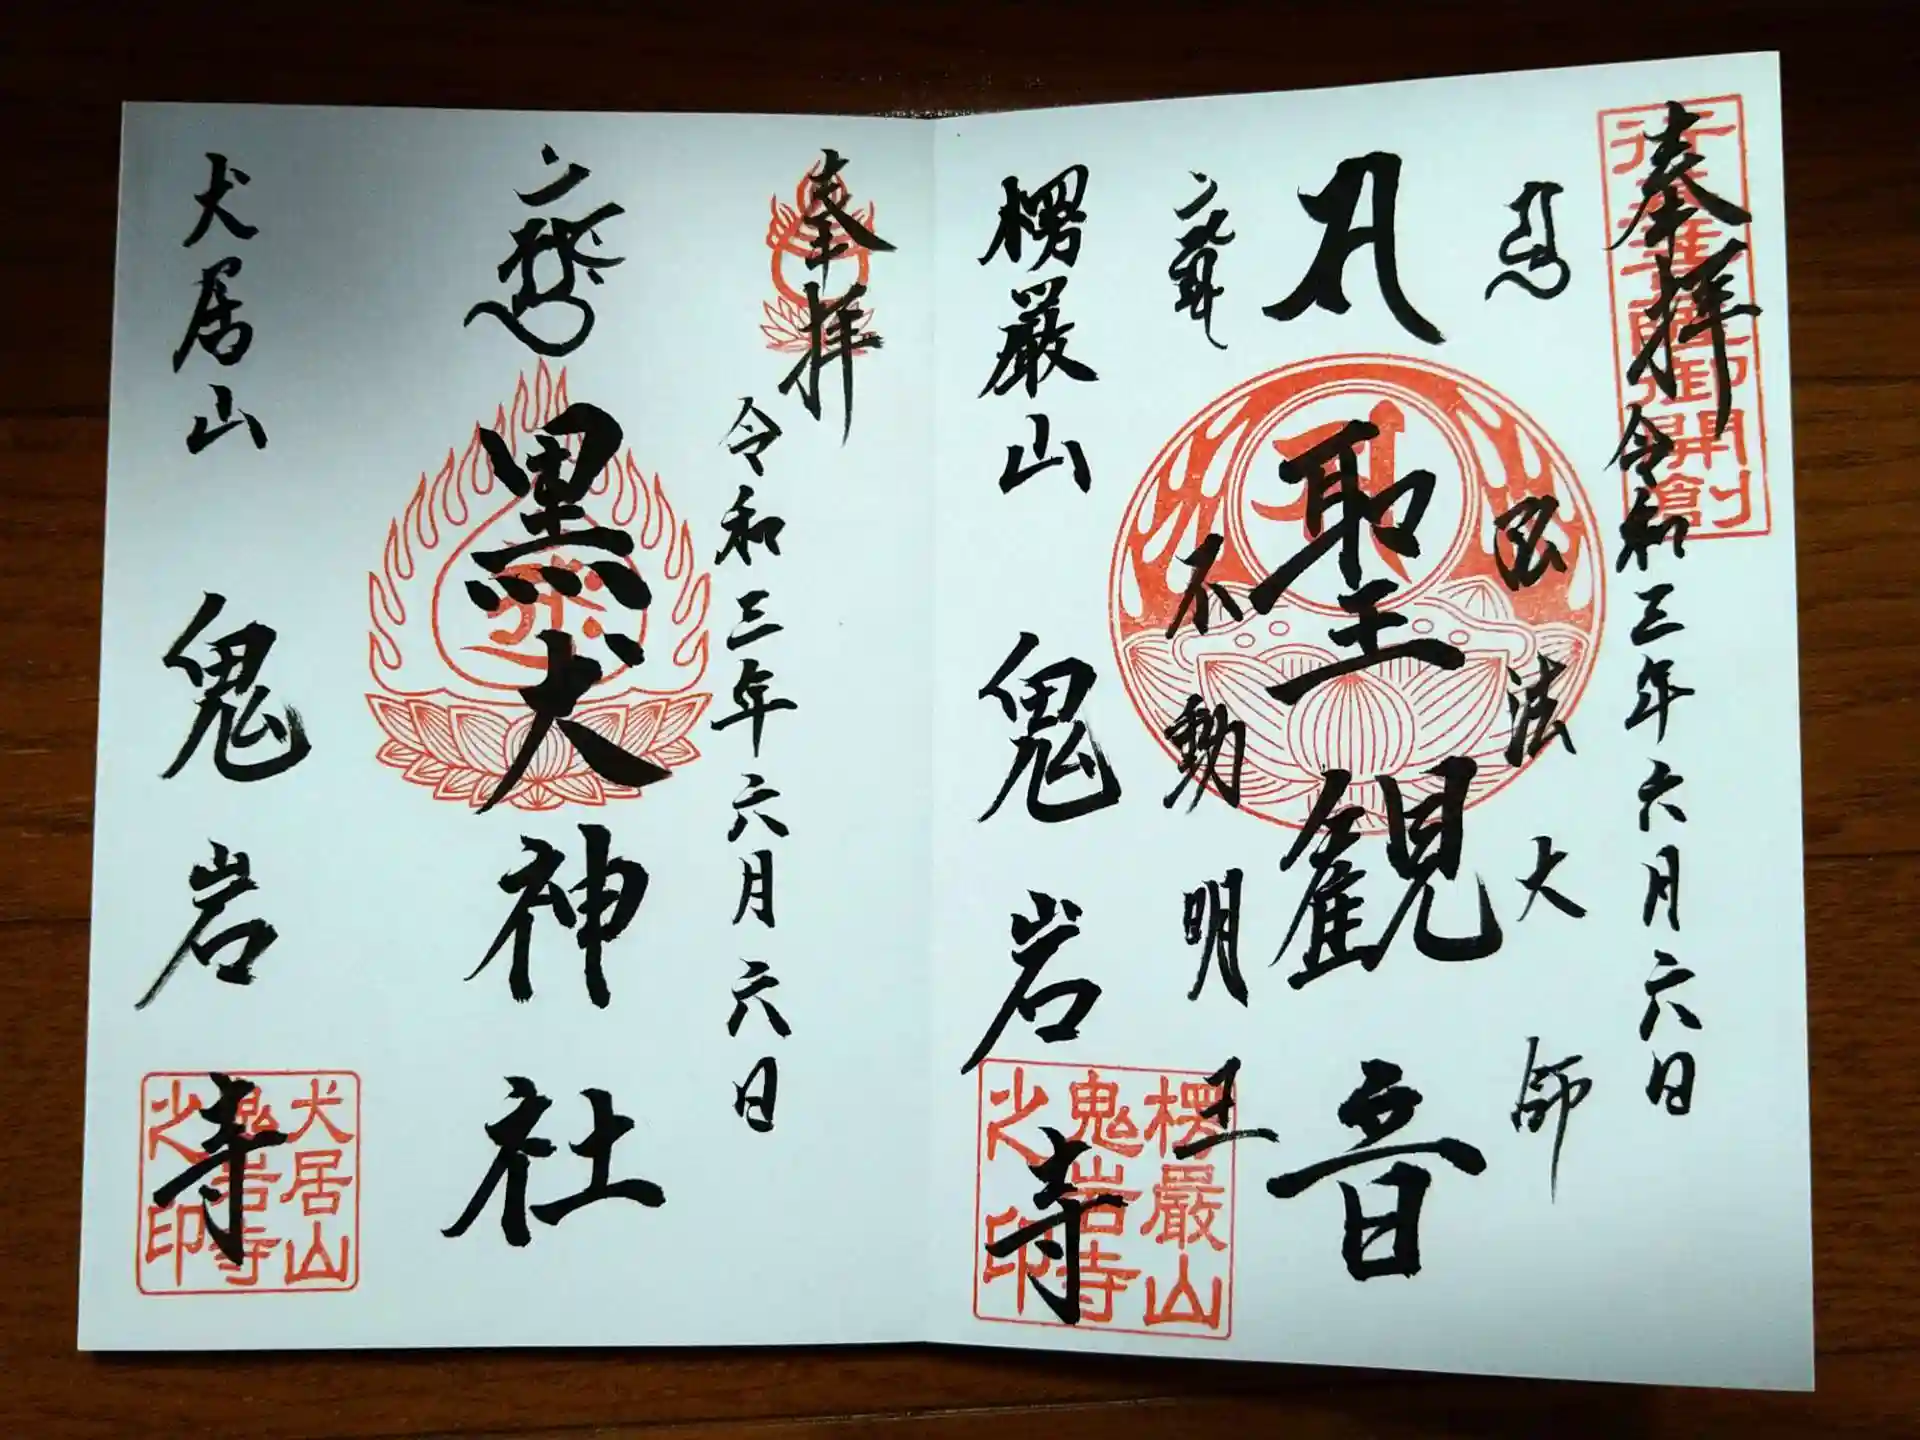 奉拝
令和三年六月六日
弘法大師
聖観音
不動明王
楞厳山
鬼岩寺
行基菩薩御開創
楞嚴山
鬼岩寺
之印
奉拝
令和三年六月六日
黒犬神社
犬居山
鬼岩寺
犬居山
鬼岩寺
之印